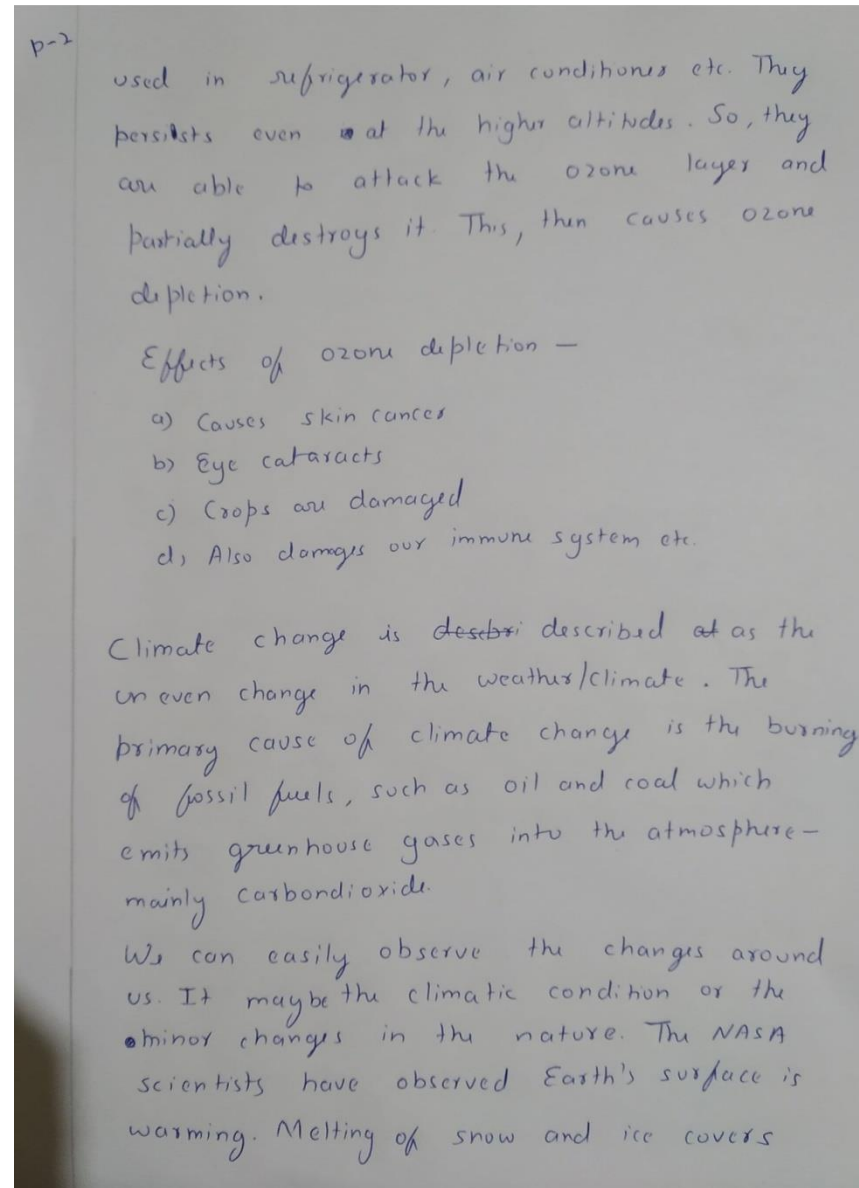 p-2
used in refrigerator, air conditioners etc. They
persists even at the higher altitudes. So, they
are able to attack the ozone layer and
partially destroys it. This, then causes ozone
depletion.
Effects of ozone depletion —
a) Causes skin cancer
b) Eye cataracts
c) Crops are damaged
d) Also damages our immune system etc.
Climate change is descbri described at as the
un even change in the weather/climate. The
primary cause of climate change is the burning
of fossil fuels, such as oil and coal which
emits greenhouse gases into the atmosphere —
mainly carbondioxide.
We can easily observe the changes around
us. It maybe the climatic condition or the
minor changes in the nature. The NASA
scientists have observed Earth's surface is
warming. Melting of snow and ice covers